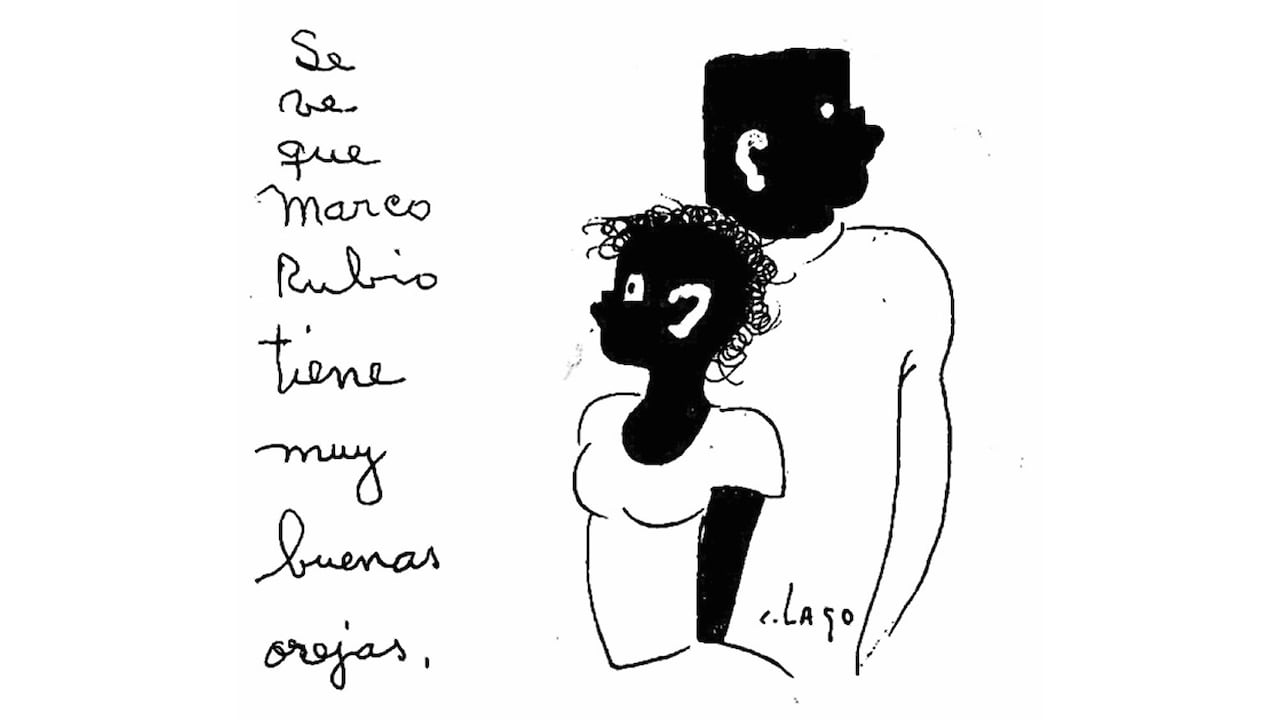 Se
ve
que
Marco
Rubio
tiene
muy
buenas
orejas.
c. LAgO